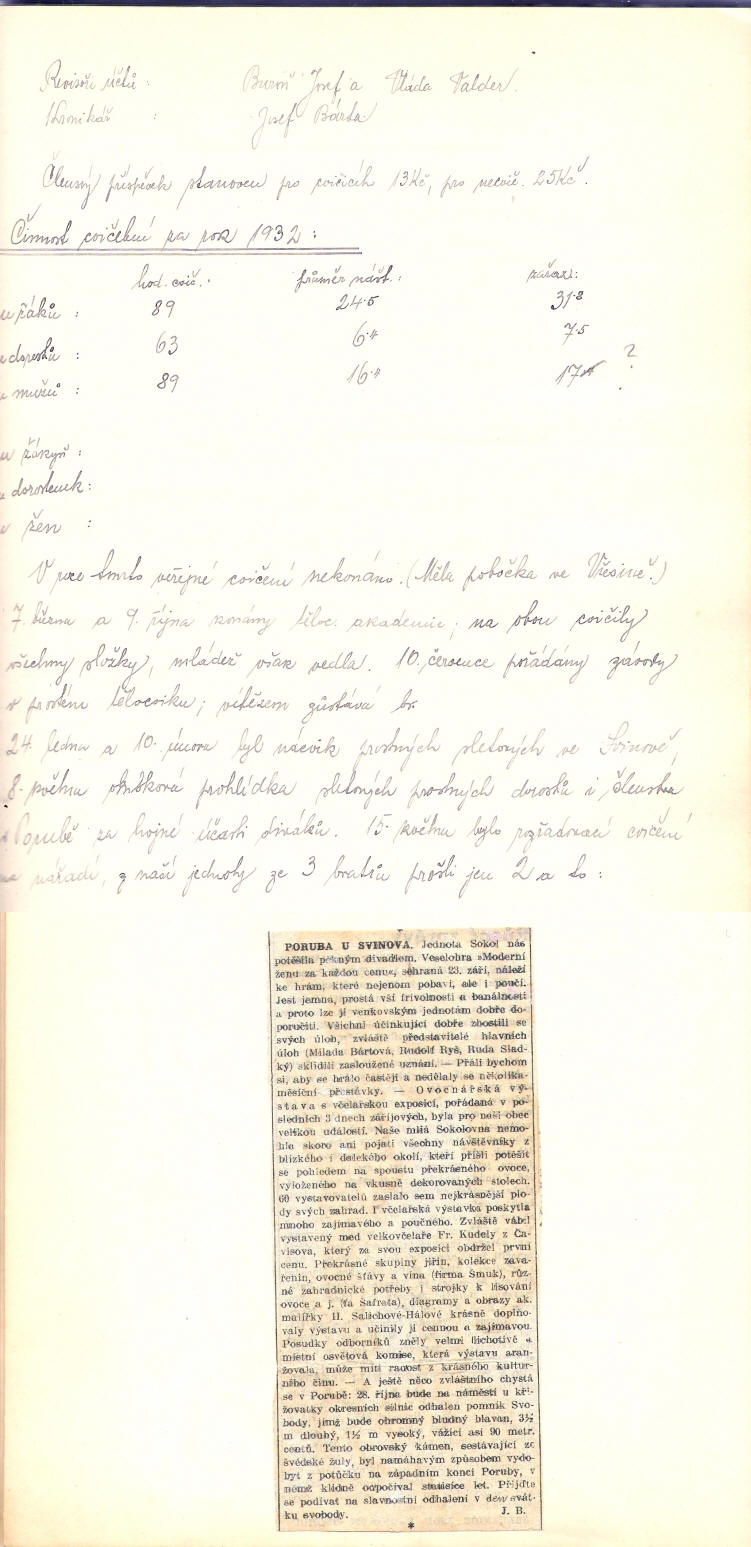 Revisoři účtů : Buroň Josef a Vláda Valder.
Kronikář : Josef Bárta
Členský příspěvek stanoven pro cvičících 13Kč, pro necvič. 25Kč.
Činnost cvičební za rok 1932 :
hod. cvič. : průměr návšt. :
u žáků : 89 24.5 31.8
u dorostů : 63 6.4 7.5
u mužů : 89 16.4 17 ?
u žákyň :
u dorostenek :
u žen :
V roce tomto veřejné cvičení nekonáno. (Měla pobočka ve Vřesině.)
7. března a 9. října konány těloc. akademie; na obou cvičily
všechny složky, mládež však vedla. 10. července pořádány závody
v prostém tělocviku; vítězem zůstává br.
24. ledna a 10. února byl nácvik prostných sletových ve Svinově,
8. května okrsková prohlídka sletových prostných dorostu i členstva
v Porubě za hojné účasti diváků. 15. května bylo rozřaďovací cvičení
na nářadí, z naší jednoty ze 3 bratrů prošli jen 2 a to :
PORUBA U SVINOVA. Jednota Sokol nás
potěšila pěkným divadlem. Veselohra »Moderní
ženu za každou cenu«, sehraná 23. září, náleží
ke hrám, které nejenom pobaví, ale i poučí.
Jest jemna, prostá vší frivolnosti a banálnosti
a proto lze ji venkovským jednotám dobře do-
poručiti. Všichni účinkující dobře zhostili se
svých úloh, zvláště představitelé hlavních
úloh (Milada Bártová, Rudolf Ryš, Ruda Slad-
ký) sklidili zasloužené uznání. — Přáli bychom
si, aby se hrálo častěji a nedělaly se několika-
měsíční přestávky. — Ovocnářská vý-
stava s včelařskou exposicí, pořádaná v po-
sledních 3 dnech zářijových, byla pro naši obec
velikou událostí. Naše milá Sokolovna nemo-
hla skoro ani pojati všechny návštěvníky z
blízkého i dalekého okolí, kteří přišli potěšit
se pohledem na spoustu překrásného ovoce,
vyloženého na vkusně dekorovaných stolech.
60 vystavovatelů zaslalo sem nejkrásnější plo-
dy svých zahrad. I včelařská výstavka poskytla
mnoho zajímavého a poučného. Zvláště vábel
vystavený med velkovčelaře Fr. Kudely z Ča-
visova, který za svou exposici obdržel první
cenu. Překrásné skupiny jiřin, kolekce zava-
řenin, ovocné šťávy a vína (firma Šmuk), růz-
né zahradnické potřeby i strojky k lisování
ovoce a j. (fa Šafrata), diagramy a obrazy ak.
malířky H. Salichové-Hálové krásně doplňo-
valy výstavu a učinily ji cennou a zajímavou.
Posudky odborníků zněly velmi lichotivě a
místní osvětová komise, která výstavu aran-
žovala, může míti radost z krásného kultur-
ního činu. — A ještě něco zvláštního chystá
se v Porubě: 28. října bude na náměstí u kři-
žovatky okresních silnic odhalen pomník Svo-
body, jímž bude ohromný bludný blavan, 3½
m dlouhý, 1½ m vysoký, vážící asi 90 metr.
centů. Tento obrovský kámen, sestávající ze
švédské žuly, byl namáhavým způsobem vydo-
byt z potůčku na západním konci Poruby, v
němž klidně odpočíval statisíce let. Přijďte
se podívat na slavnostní odhalení v den svát-
ku svobody. J. B.
*